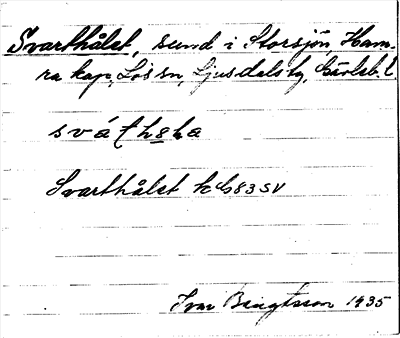 Svarthålet, sund i Storsjön, Ham-
ra kap, Los sn, Ljusdals tg, Gävleb. l.
Svarthålet kb 83 SV
Ivar Bengtsson 1935